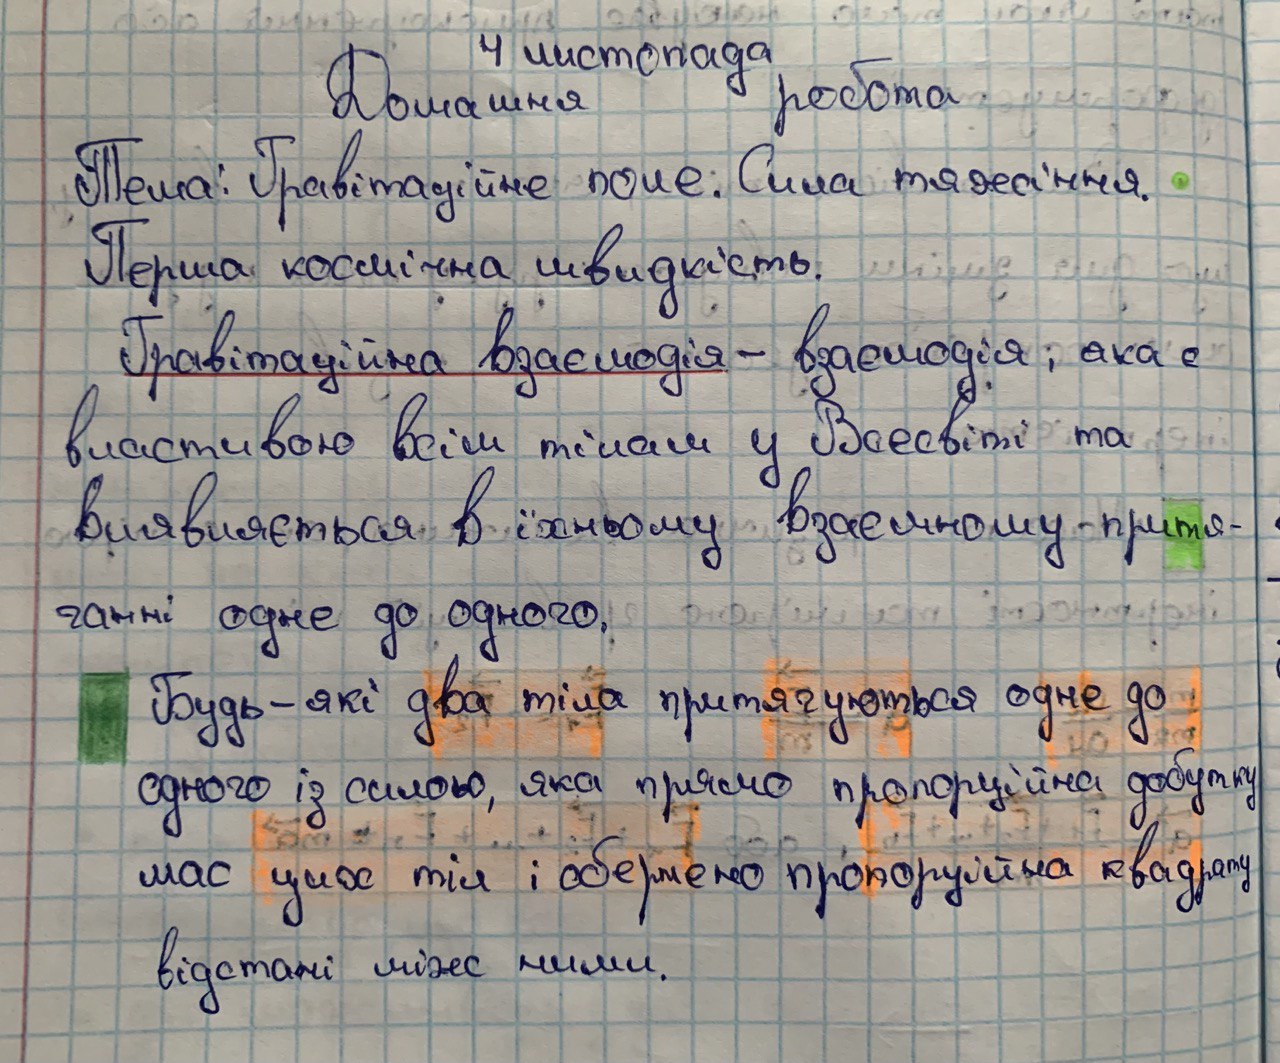 4 листопада
Домашня робота
Тема: Гравітаційне поле. Сила тяжіння.
Перша космічна швидкість.
Гравітаційна взаємодія – взаємодія, яка є
властивою всім тілам у Всесвіті та
виявляється в їхньому взаємному притя-
ганні одне до одного.
Будь-які два тіла притягуються одне до
одного із силою, яка прямо пропорційна добутку
мас цих тіл і обернено пропорційна квадрату
відстані між ними.